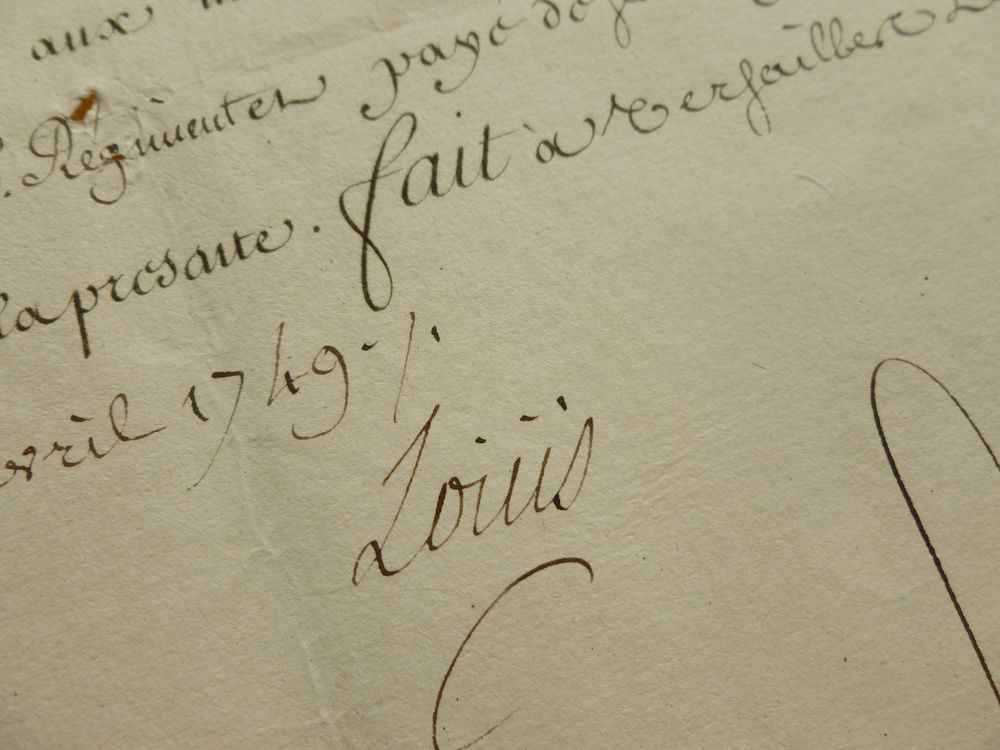 aux
Régimenter payé de
la presante. fait à Versailles
avril 1749./.
Louis